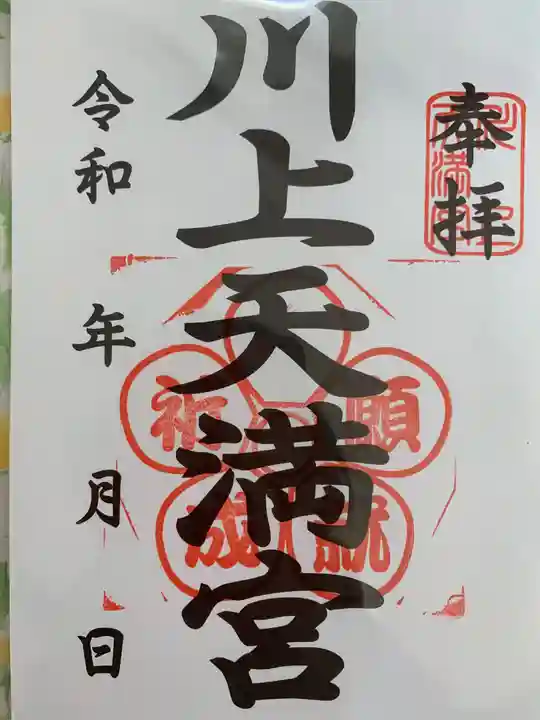 奉拝
川上天満宮
令和 年 月 日
祈願
成就